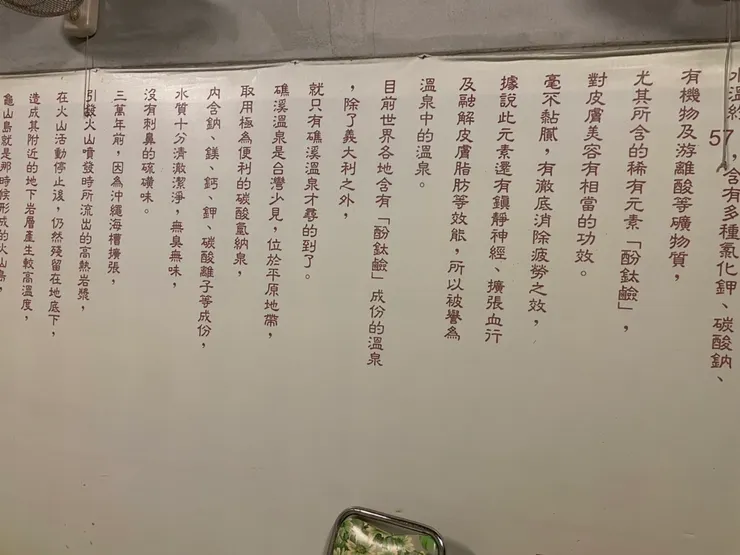 水溫約57，含有多種氯化鉀、碳酸鈉、
有機物及游離酸等礦物質，
尤其所含的稀有元素「酚鈦鹼」，
對皮膚美容有相當的功效。
毫不黏膩，有澈底消除疲勞之效，
據說此元素還有鎮靜神經、擴張血行
及融解皮膚脂肪等效能，所以被譽為
溫泉中的溫泉。
目前世界各地含有「酚鈦鹼」成份的溫泉
，除了義大利之外，
就只有礁溪溫泉才尋的到了。
礁溪溫泉是台灣少見，位於平原地帶，
取用極為便利的碳酸氫納泉，
內含鈉、鎂、鈣、鉀、碳酸離子等成份，
水質十分清澈潔淨，無臭無味，
沒有刺鼻的硫磺味。
三萬年前，因為沖繩海槽擴張，
引發火山噴發時所流出的高熱岩漿，
在火山活動停止後，仍然殘留在地底下，
造成其附近的地下岩層產生較高溫度，
龜山島就是那時候形成的火山島，